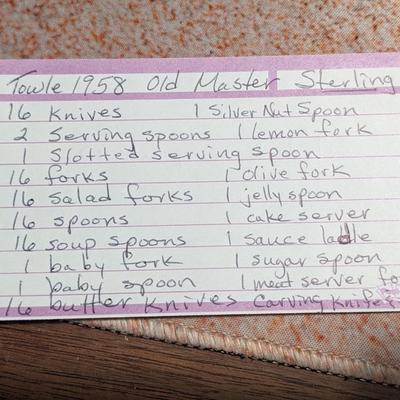 Towle 1958 Old Master Sterling
16 Knives 1 Silver Nut Spoon
2 Serving spoons 1 lemon fork
1 Slotted serving spoon
16 forks 1 olive fork
16 Salad forks 1 jelly spoon
16 spoons 1 cake server
16 soup spoons 1 sauce ladle
1 baby fork 1 sugar spoon
1 baby spoon 1 meat server fo
16 butter knives Carving Knife